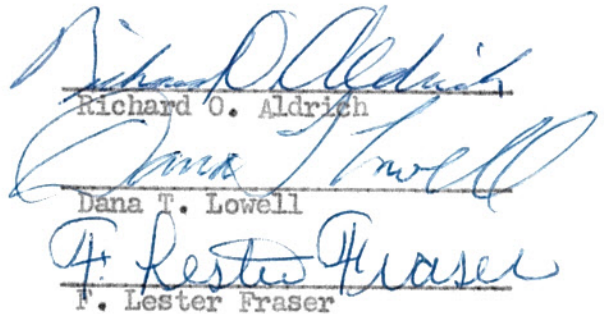 Richard O. Aldrich
Richard O. Aldrich
Dana T. Lowell
Dana T. Lowell
F. Lester Fraser
F. Lester Fraser